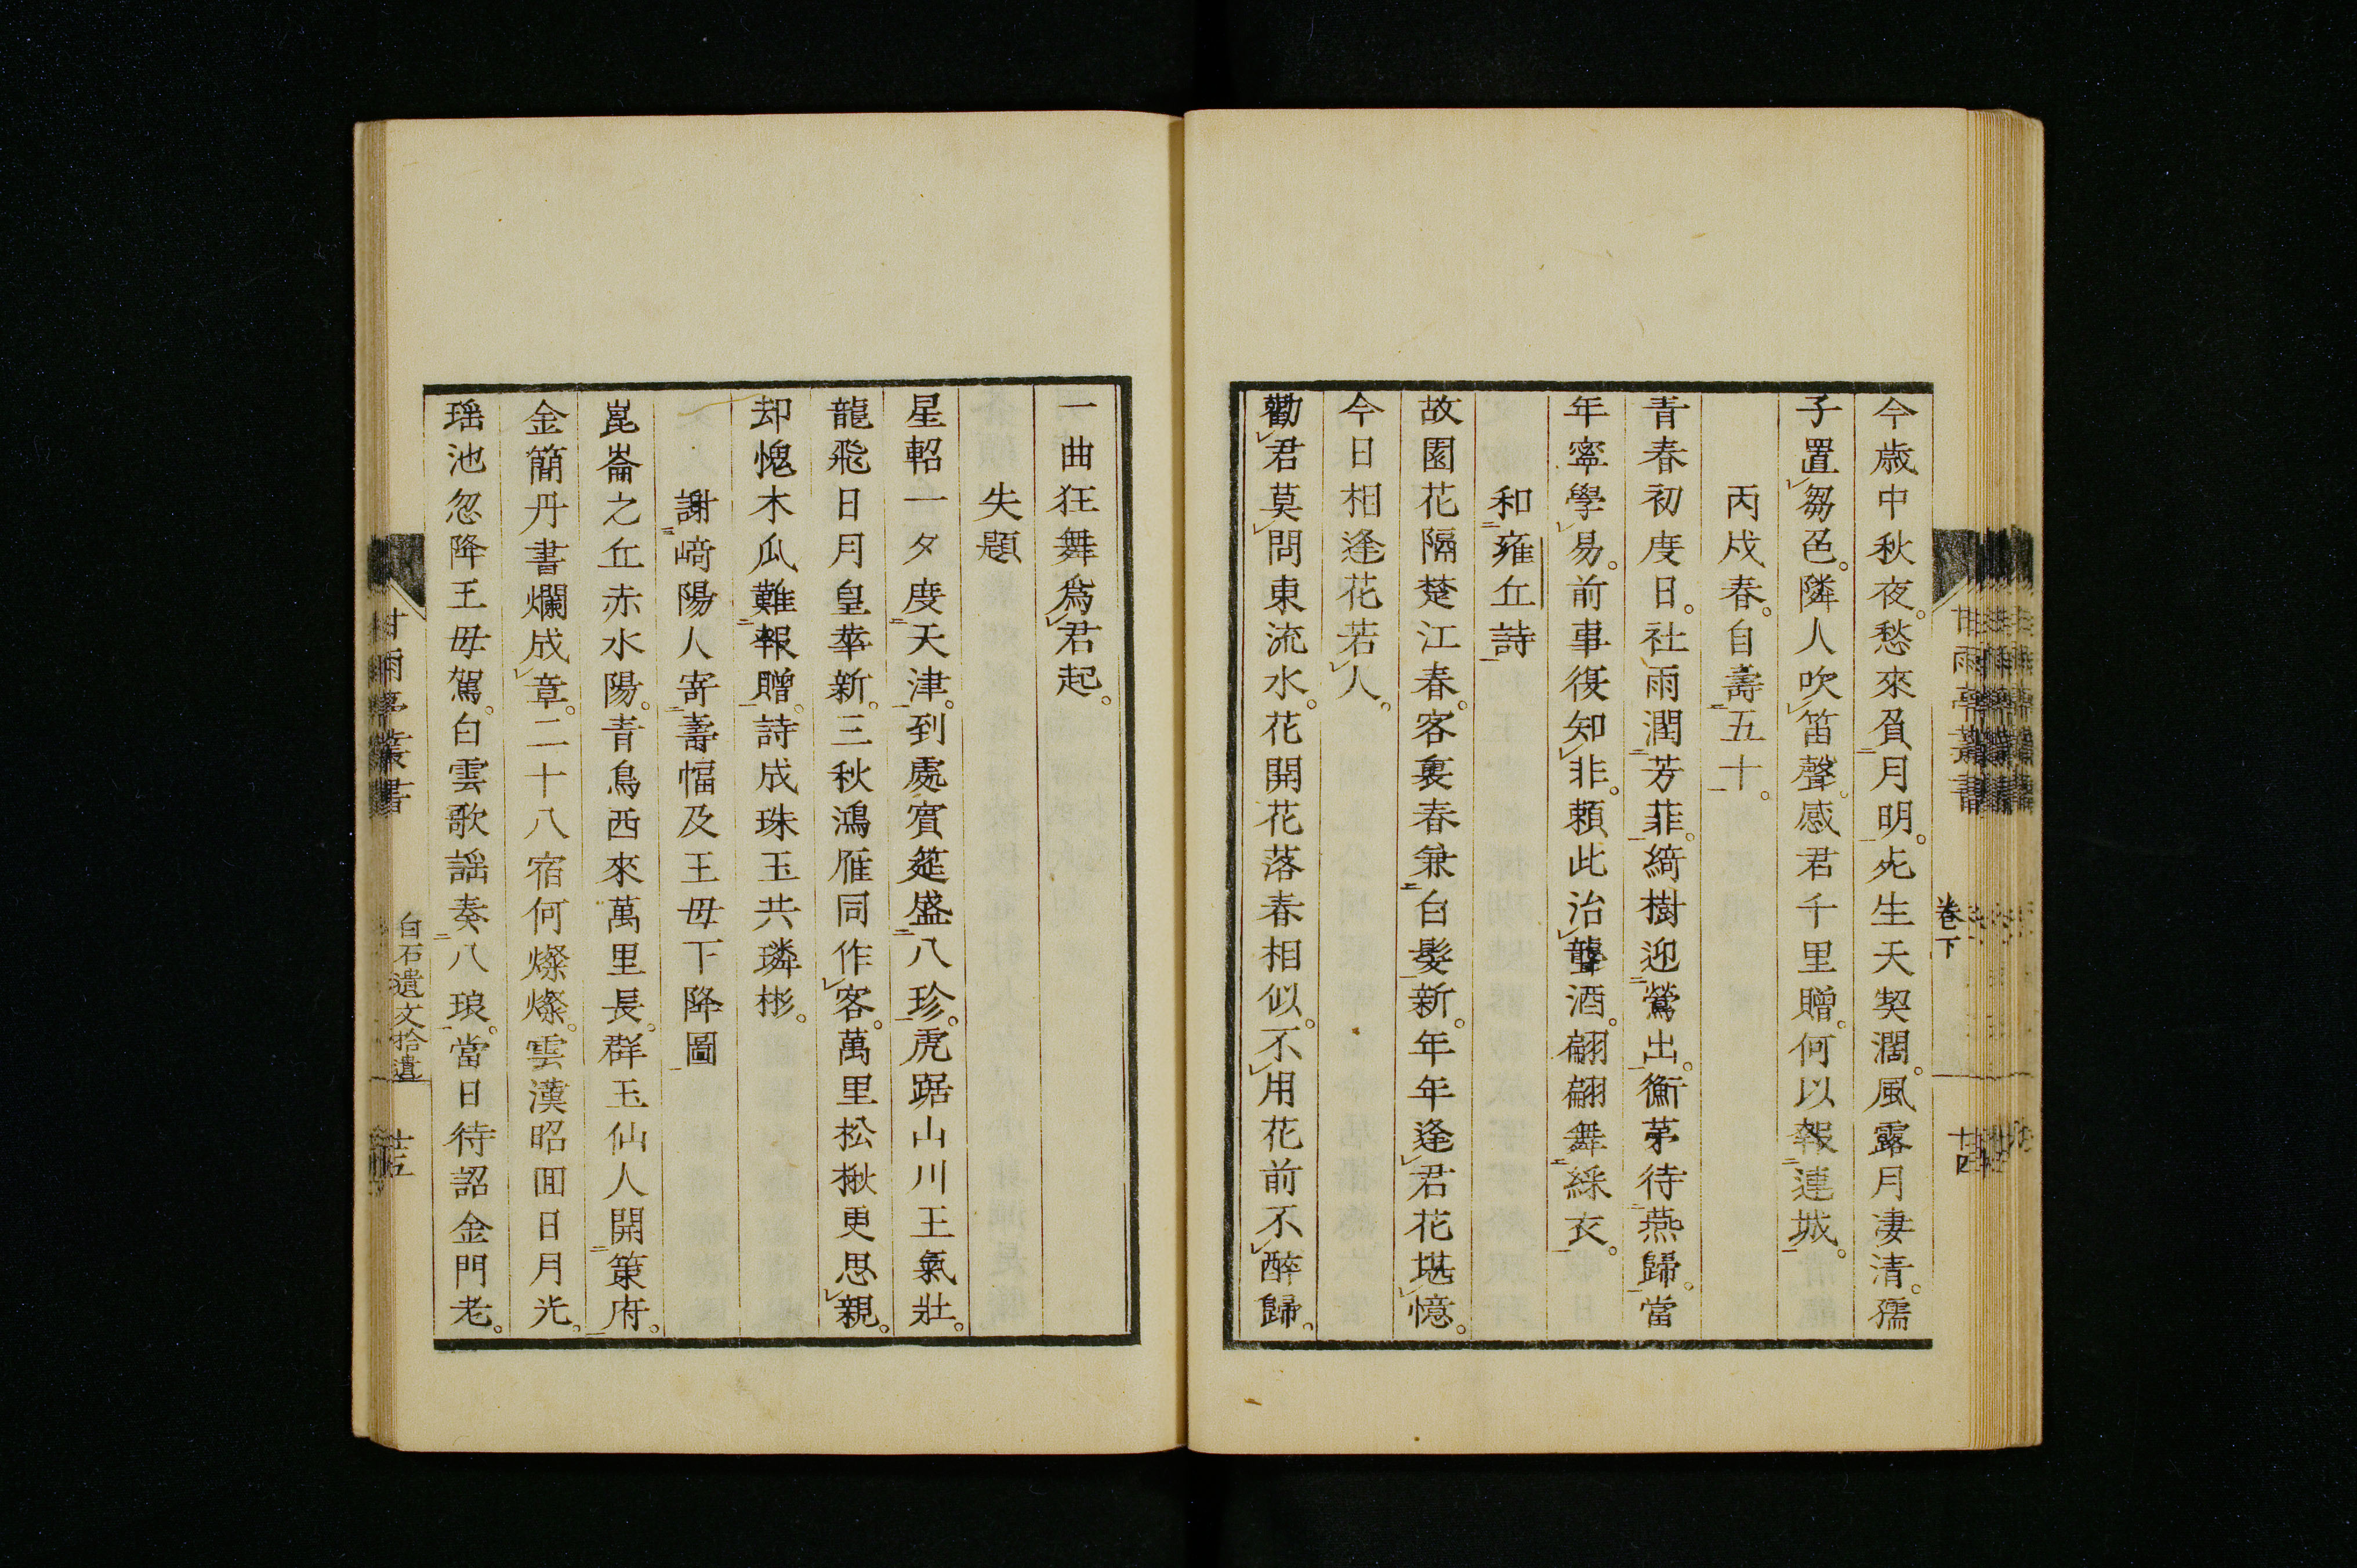 今歳中秋夜。愁來負月明。死生天契濶。風露月凄清。孺
子置芻色。隣人吹笛聲。感君千里贈。何以報連城。
丙戌春。自壽五十。
青春初度日。社雨潤芳菲。綺樹迎鶯出。衡茅待燕歸。當
年寧學易。前事復知非。賴此治聾酒。翩翩舞綵衣。
和雍丘詩
故園花隔楚江春。客裏春兼白髮新。年年逢君花堪憶。
今日相逢花若人。
勸君莫問東流水。花開花落春相似。不用花前不醉歸。
卷下
甘雨亭叢書
廿四
一曲狂舞爲君起。
失題
星軺一夕度天津。到處賓筵盛八珍。虎踞山川王氣壯。
龍飛日月皇華新。三秋鴻雁同作客。萬里松楸更思親。
却愧木瓜難報贈。詩成珠玉共璘彬。
謝﨑陽人寄壽幅及王母下降圖
崑崙之丘赤水陽。青鳥西來萬里長。群玉仙人開策府。
金簡丹書爛成章。二十八宿何燦燦。雲漢昭囬日月光。
瑶池忽降王母駕。白雲歌謡奏八琅。當日待詔金門老。
甘雨亭叢書
白石遺文拾遺
廿五